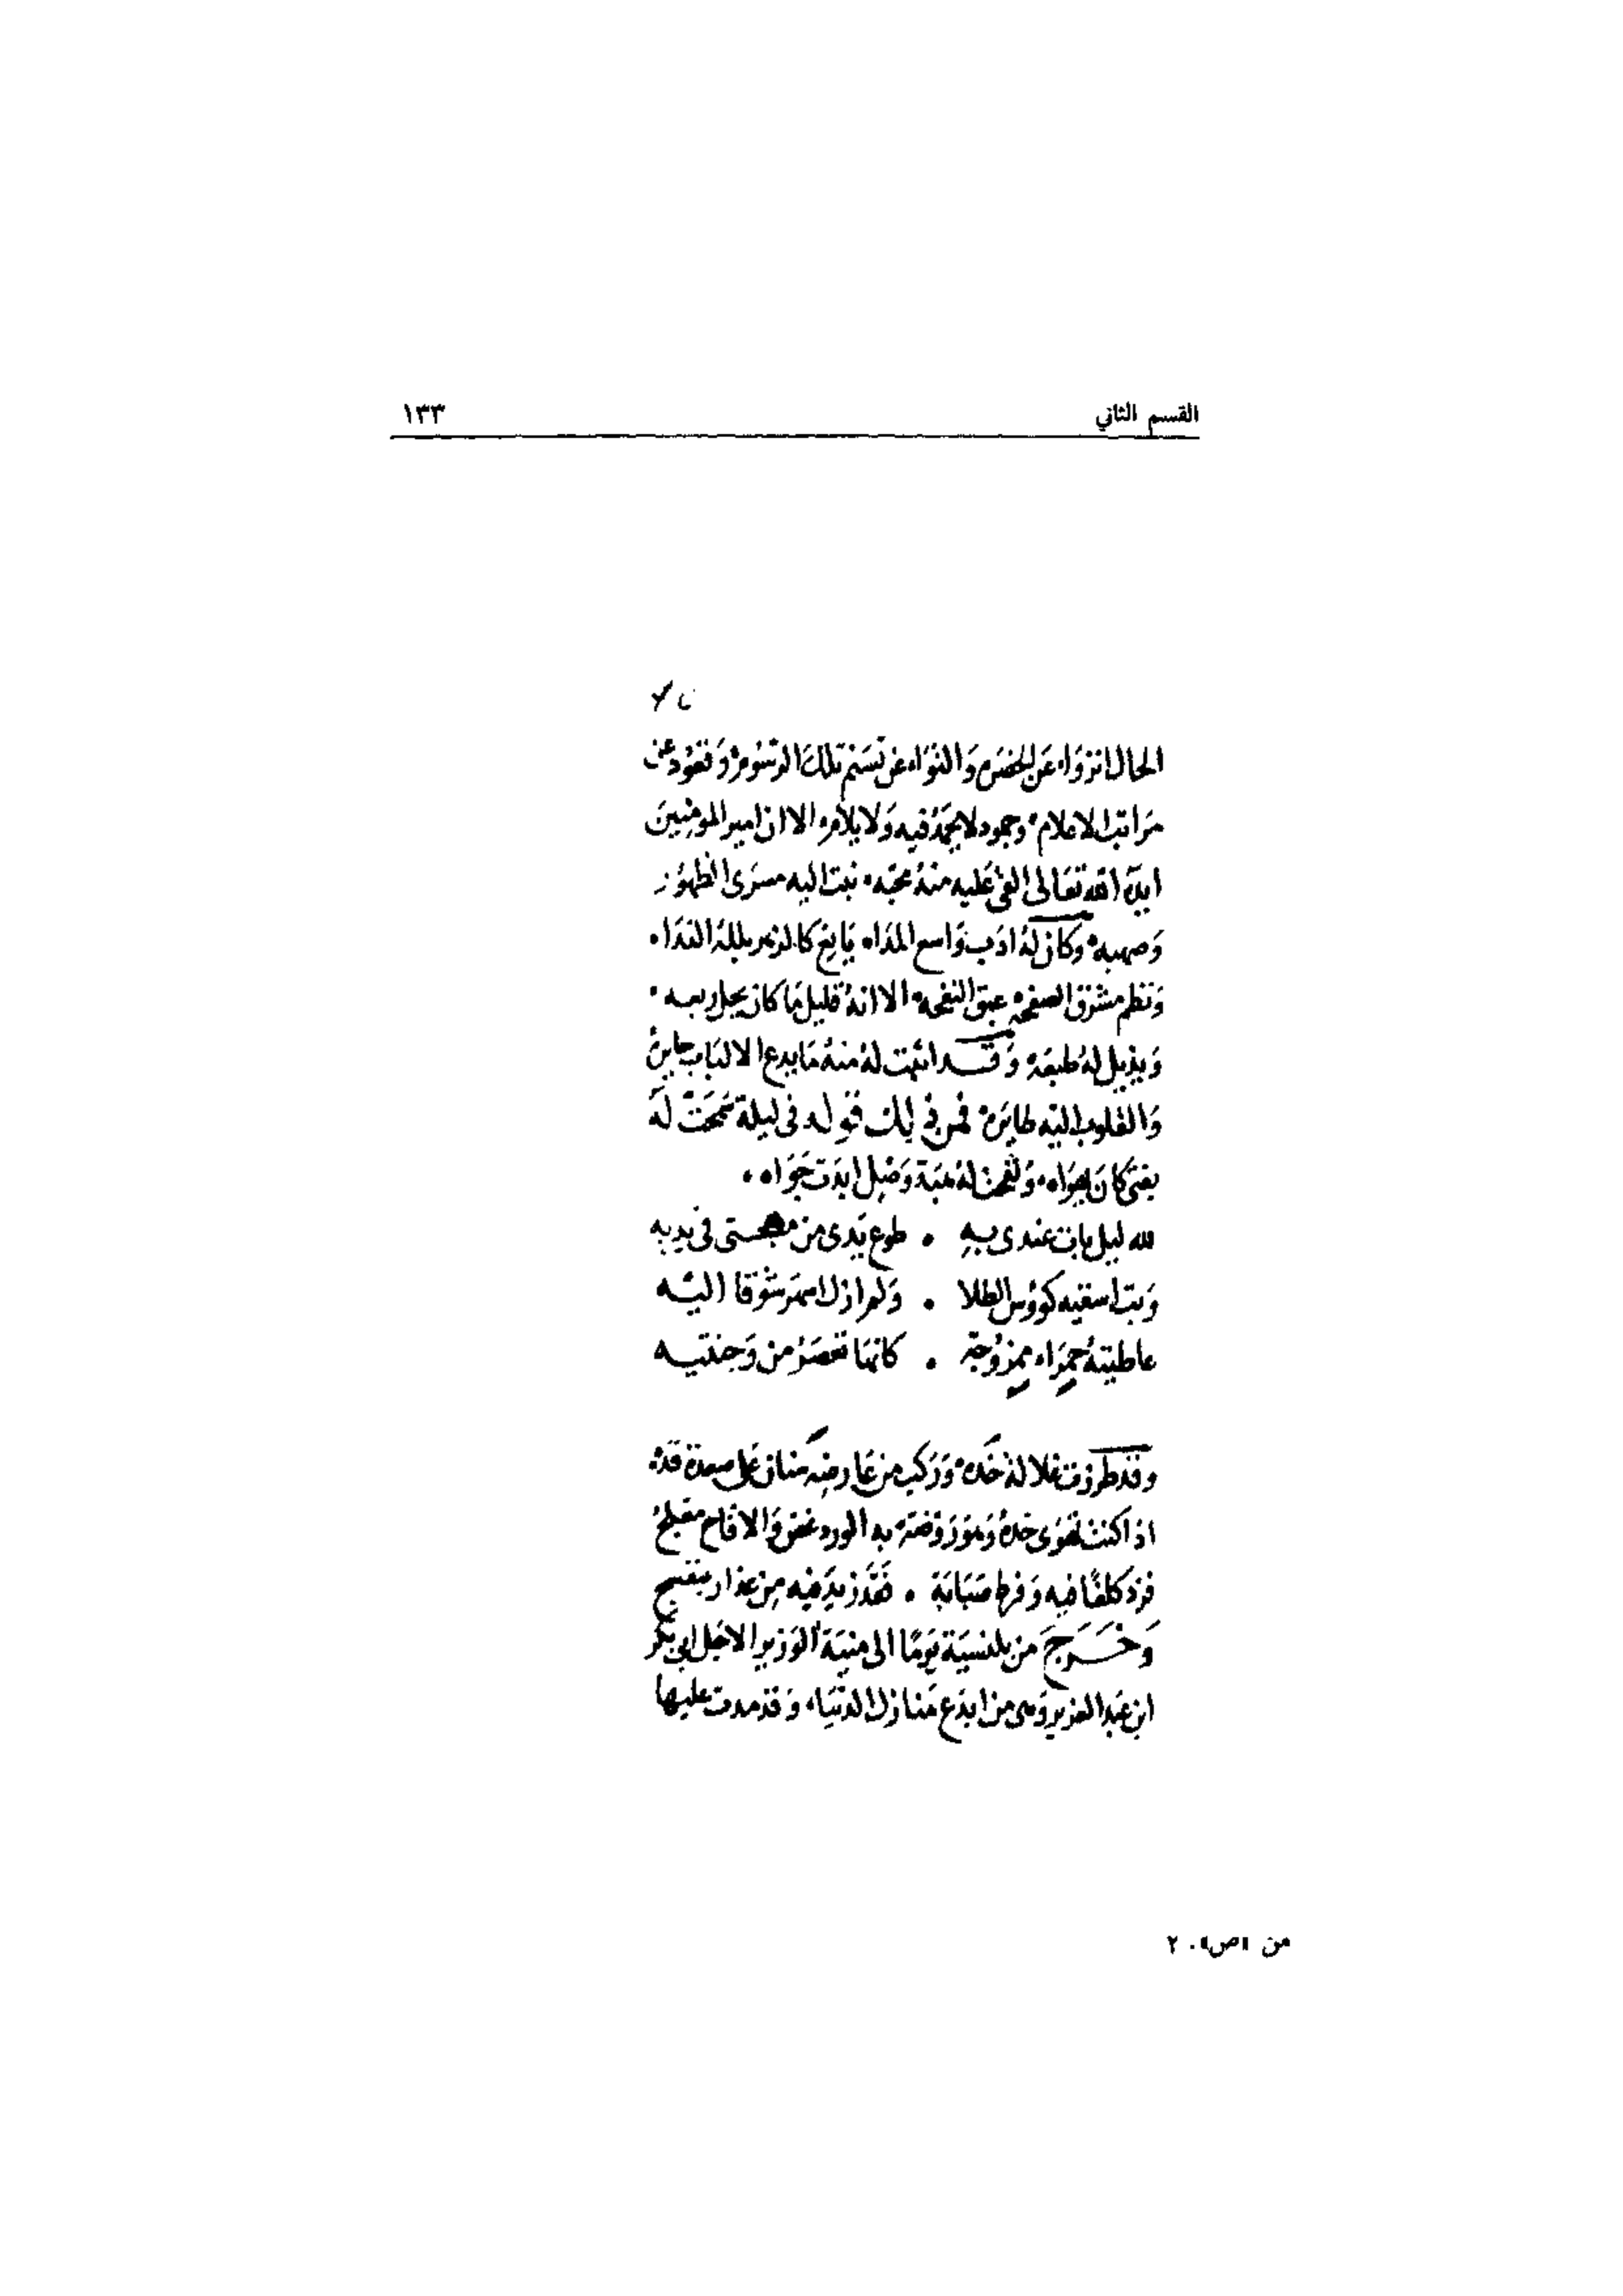 القسم الثاني ١٣٣
الحال انزواء عن الحضرم والتواء عن تسنم تلك الرسوم وقعود عن
مراتب الاعلام وجمود لا يحمد فيه ولا يلام الا ان امير المومنين
ايده الله تعالى القى عليه منه محبه جبت اليه مسرى الظهور
ومهبه وكان له ادب واسع المداه يانع كالزهر بلله النداه
ونظم مشرق الصفحه عبق النفحه الا انه قليل ما كان يحل ربعه
ويذيل له طبعه وقد اثبت له منه ما يدع الالباب حايره
والقلوب اليه طايره فمن ذلك قوله فى ليلة سمحت له
بفتى كان يهواه ونفحت له هبة وصل ابردت جواه
لله ليل بات عندى به طوع يدى من مهجتى فى يديه
وبت اسقيه كووس الطلا ولم ازل اسهر شوقا اليه
عاطيته حمراء ممزوجة كانها تعصر من وجنتيه
وقد طرزت غلالة خده وركب من عارضه سنان على صعدة قده
اذا كنت تهوى خده وهو روضة به الورد غض والاقاح مفلج
فزد كلفا فيه وفرط صبابة فقد زيد فيه من عذار بنفسج
وخرج من بلنسية يوما الى منية الوزير الاجل ابى بكر
ابن عبد العزيز وهى من ابدع منازل الدنيا وقد مدت عليها
من «ص» ٢٠